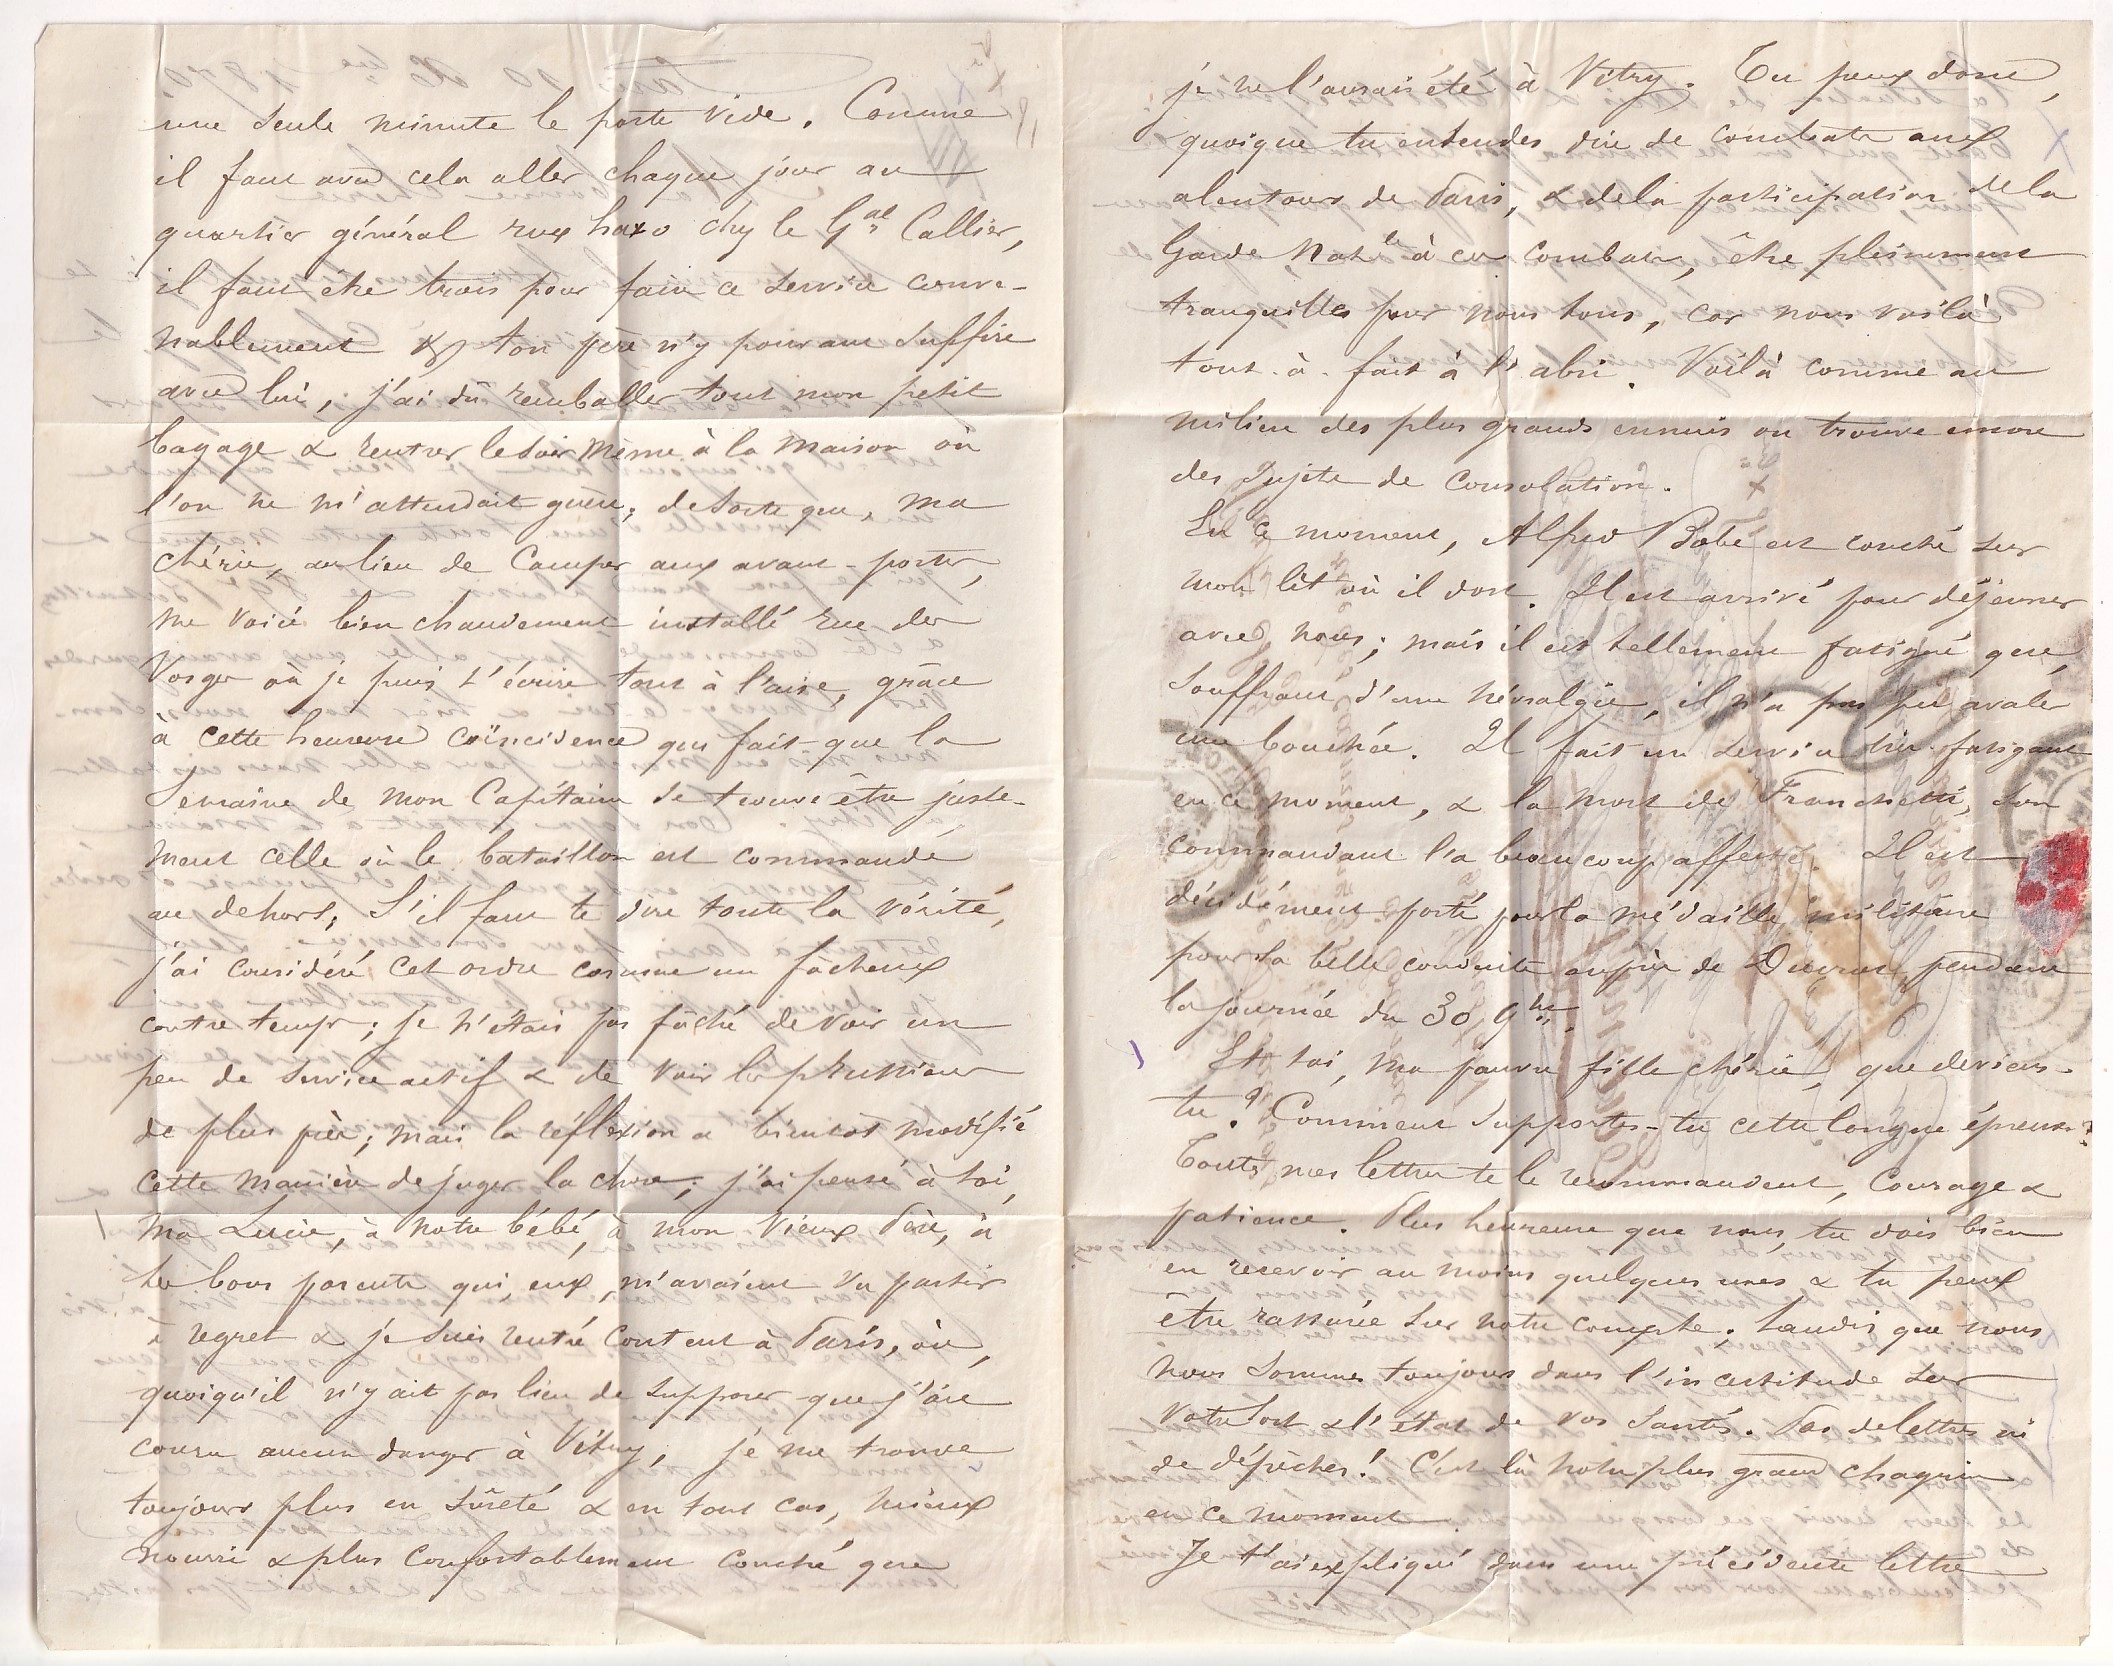 une seule minute le poste vide. Comme
il faut avec cela aller chaque jour au
quartier général rue haxo chez le Gal Callier,
il faut être trois pour faire ce service conve-
nablement & ton père n'y pouvant suffire
avec lui, j'ai dû remballer tout mon petit
bagage & rentrer le soir même à la maison où
l'on ne m'attendait guère; de sorte que, ma
chérie, au lieu de camper aux avant-postes,
me voici bien chaudement installé rue des
Vosges où je puis t'écrire tout à l'aise, grâce
à cette heureuse coïncidence qui fait que la
semaine de mon Capitaine se trouve être juste-
ment celle où le bataillon est commandé
au dehors. S'il faut te dire toute la vérité,
j'ai considéré cet ordre comme un fâcheux
contre temps; je n'étais pas fâché de voir un
peu de service actif & de voir les prussiens
de plus près; mais la réflexion a bientôt modifié
cette manière de juger la chose; j'ai pensé à toi,
ma Lucie, à notre bébé, à mon vieux Père, à
tes bons parents qui, eux, m'avaient vu partir
à regret & je suis rentré content à Paris, où,
quoiqu'il n'y ait pas lieu de supposer que j'aie
couru aucun danger à Vitry, je me trouve
toujours plus en sûreté & en tout cas, mieux
nourri & plus confortablement couché que
je ne l'aurais été à Vitry. Tu peux donc,
quoique tu entendes dire de combats aux
alentours de Paris, & de la participation de la
Garde Natle à ces combats, être pleinement
tranquilles pour nous tous, car nous voilà
tout-à-fait à l'abri. Voilà comme au
milieu des plus grands ennuis on trouve encore
des sujets de consolation.
En ce moment, Alfred Babé est couché sur
mon lit où il dort. Il est arrivé pour déjeuner
avec nous; mais il est tellement fatigué que,
souffrant d'une névralgie, il n'a pas pu avaler
une bouchée. Il fait un service très fatigant
en ce moment, & la mort de Franchetti, son
commandant l'a beaucoup affecté. Il est
décidément porté pour la médaille militaire
pour sa belle conduite auprès de Ducrot pendant
la journée du 30 9bre.
Et toi, ma pauvre fille chérie, que deviens-
tu? Comment supportes-tu cette longue épreuve?
Toutes mes lettres te le recommandent, Courage &
patience. Plus heureuse que nous, tu dois bien
en recevoir au moins quelques unes & tu peux
être rassurée sur notre compte; tandis que nous
nous sommes toujours dans l'incertitude sur
votre sort & l'état de vos santés. Pas de lettres ni
de dépêches! C'est là notre plus grand chagrin
en ce moment.
Je t'ai expliqué dans une précédente lettre